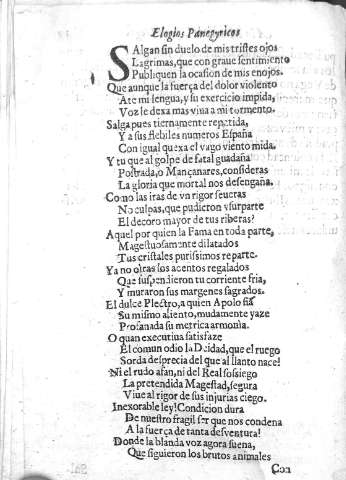 Elogios Panegyricos
SAlgan sin duelo de mis tristes ojos
Lagrimas, que con graue sentimiento
Publiquen la ocasion de mis enojos.
Que aunque la fuerça del dolor violento
Ate mi lengua, y su exercicio impida,
Voz le dexa mas viua a mi tormento.
Salga pues tiernamente repetida,
Y a sus flebiles numeros España
Con igual quexa el vago viento mida.
Y tu que al golpe de fatal guadaña
Postrada, o Mançanares, consideras
La gloria que mortal nos desengaña.
Como las iras de vn rigor seueras
No culpas, que pudieron vsurparte
El decoro mayor de tus riberas?
Aquel por quien la Fama en toda parte,
Magestuosamente dilatados
Tus cristales purissimos reparte.
Ya no oiras los acentos regalados
Que suspendieron tu corriente fria,
Y muraron sus margenes sagrados.
El dulce Plectro, a quien Apolo fia
Su mismo aliento, mudamente yaze
Profanada su metrica armonia.
O quan executiua satisfaze
El comun odio la Deidad, que el ruego
Sorda desprecia del que al llanto nace!
Ni el rudo afan, ni del Real sossiego
La pretendida Magestad, segura
Viue al rigor de sus injurias ciego.
Inexorable ley! Condicion dura
De nuestro fragil ser que nos condena
A la fuerça de tanta desventura!
Donde la blanda voz agora suena,
Que siguieron los brutos animales
Con